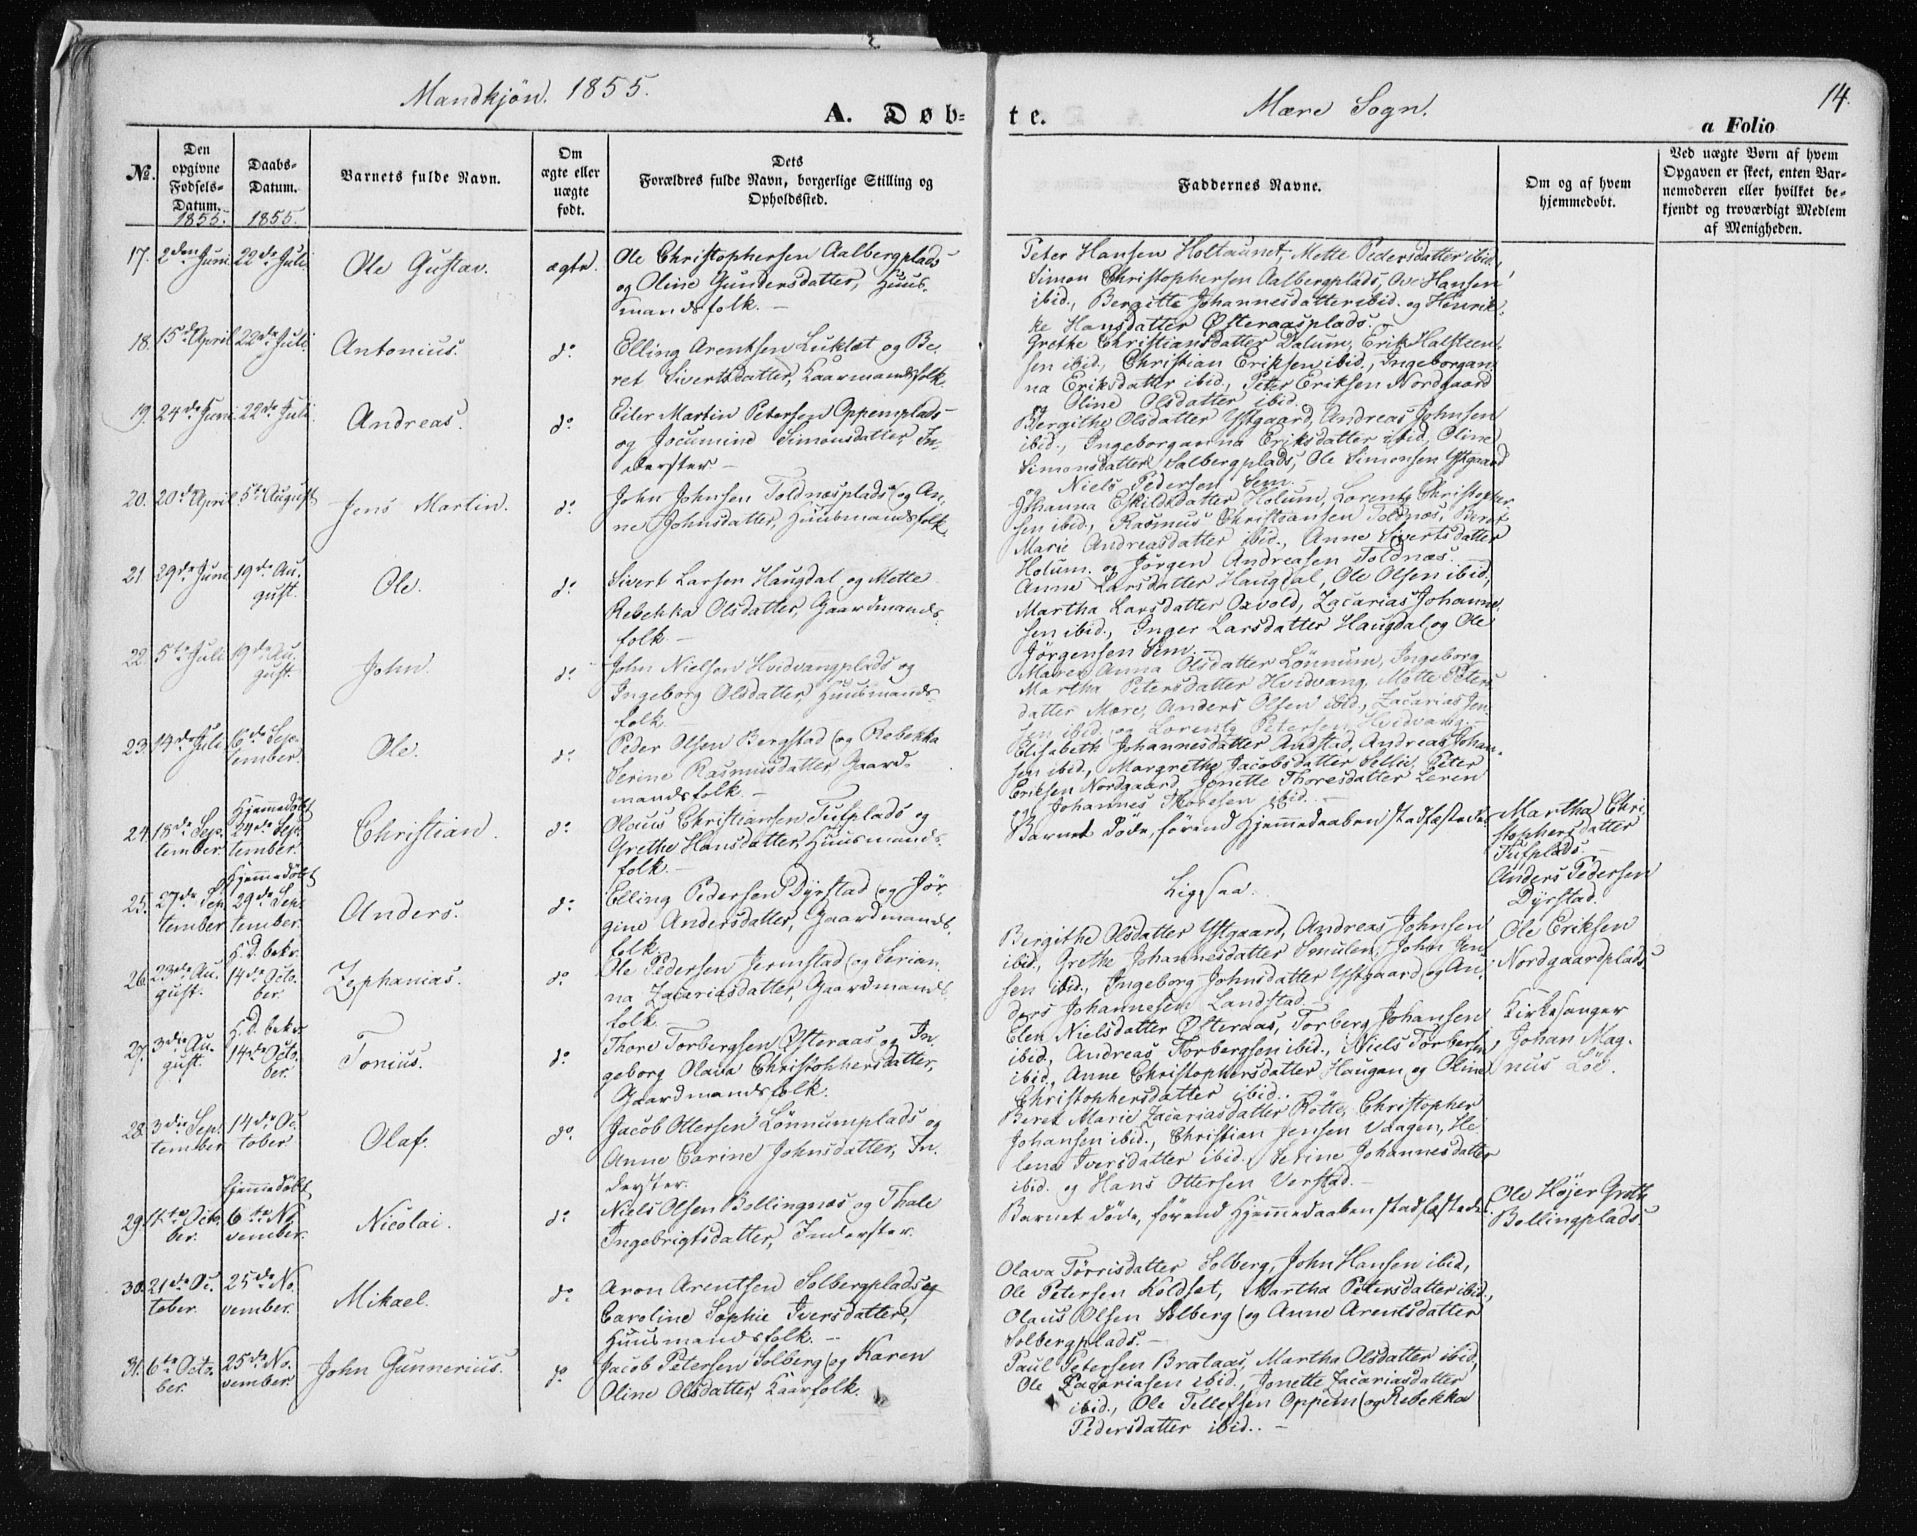 Mandkjøn. 1855.
A. Døb-
te.
Mære Sogn.
14.
a Folio
No.
Den opgivne Fødsels-Datum. 1855.
Daabs-Datum. 1855.
Barnets fulde Navn.
Om ægte eller uægte født.
Dets Forældres fulde Navn, borgerlige Stilling og Opholdssted.
Faddernes Navne.
Om og af hvem hjemmedøbt.
Ved uægte Børn af hvem Opgaven er skeet, enten Barnemoderen eller hvilket bekjendt og troværdigt Medlem af Menigheden.
17. 2den Juni 22de Juli Ole Gustav. ægte.
Ole Christophersen Aalbergplads
og Oline Gundersdatter, Huus-
mandsfolk. -
Peter Hansen Holtaunet, Mette Pedersdatter ibid.,
Simon Christophersen Aalbergplads, Ove Hansen
ibid., Bergitte Johannesdatter ibid. og Henrik-
ke Hansdatter Østeraasplads. -
18. 15de April 22de Juli. Antonius. do.
Elling Arentsen Lukløt og Be-
ret Sivertsdatter, Kaarmandsfolk.
Grethe Christiansdatter Dalum, Erik Halsteen-
sen ibid., Christian Eriksen ibid., Ingeborgan-
na Eriksdatter ibid., Peter Eriksen Nordgaard
og Oline Olsdatter ibid.
19. 24de Juni 22de Juli. Andreas. do.
Eiler Martin Petersen Oppemplads
og Jocumine Simonsdatter, In-
derster -
Bergithe Olsdatter Ystgaard, Andreas Johnsen
ibid., Ingeborganna Eriksdatter ibid., Oline
Simonsdatter Salbergplads, Ole Simonsen Ystgaard
og Niels Pedersen Sem. -
20. 20de April 5te August Jens Martin. do.
John Johnsen Toldnæsplads og An-
ne Johnsdatter, Huusmandsfolk.
Johanna Eskildsdatter Holum, Lorents Christopher-
sen ibid., Rasmus Christiansen Toldnæs, Beret
Marie Andreasdatter ibid., Anne Sivertsdatter
Holum. og Jørgen Andreasen Toldnæs. -
21 29de Juni 19de Au-
gust. Ole. do.
Sivert Larsen Haugdal og Mette
Rebekka Olsdatter, Gaardmands-
folk -
Anne Larsdatter Haugdal, Ole Olsen ibid,
Martha Larsdatter Oxvold, Zacarias Johanne-
sen ibid., Inger Larsdatter Haugdal og Ole
Jørgensen Sem. -
22. 5te Juli 19de Au-
gust. John. do.
John Nielsen Hvidvangplads og
Ingeborg Olsdatter, Huusmands-
folk.
Maren Anna Olsdatter Lønnum, Ingeborg
Martha Petersdatter Hvidvang, Mette Peters-
datter Mære, Anders Olsen ibid., Zacarias Jen-
sen ibid. og Lorents Petersen Hvidvang. -
23. 14de Juli 6te Sep-
tember. Ole. do.
Peder Olsen Bergstad og Rebekka
Serine Rasmusdatter, Gaard-
mandsfolk. -
Elisabeth Johannesdatter Andstad, Andreas Johan-
sen ibid, Margrethe Jacobsdatter Sellie, Peter
Eriksen Nordgaard, Jonette Thoresdatter Leren
og Johannes Thoresen ibid. -
24. 18de Sep-
tember. Hjemmedøbt
24de Sep-
tember. Christian. do.
Olaus Christiansen Tufplads og
Grethe Hansdatter, Huusmands-
folk. -
Barnet døde, førend Hjemmedaaben stadfæstedes.
Martha Chri-
stophersdatter
Tufplads. -
25. 27de Sep-
tember Hjemmedøbt
29de Sep-
tember. Anders. do.
Elling Pedersen Dyrstad og Jør-
gine Andersdatter, Gaardmands-
folk.
Ligesaa.
Anders Pedersen
Dyrstad.
26. 23de Au-
gust. H.D. bekr.
14de Octo-
ber. Zephanias. do.
Ole Pedersen Jermstad og Serian-
na Zacariasdatter, Gaardmands-
folk.
Bergithe Olsdatter Ystgaard, Andreas Johnsen
ibid., Grethe Johannesdatter Smulen, John Jen-
sen ibid., Ingeborg Johnsdatter Ystgaard og An-
ders Johannesen Landstad. -
Ole Eriksen
Nordgaardplads.
27. 3die Au-
gust. H.D. bekr.
14de Octo-
ber. Tonius. do.
Thore Torbergsen Østeraas og In-
geborg Olava Christophersdatter,
Gaardmandsfolk.
Elen Nielsdatter Østeraas, Torberg Johansen
ibid., Andreas Torbergsen ibid., Niels Torbersen
ibid., Anne Christophersdatter Haugan og Oline
Christophersdatter ibid.
Kirkesanger
Johan Mag-
nus Löe.
28. 3die Sep-
tember. 14de Oc-
tober Olaf. do.
Jacob Ottersen Lønnumplads og
Anne Carine Johnsdatter, In-
derster.
Beret Marie Zacariasdatter Røtte, Christopher
Johansen ibid., Christian Jensen Vaagen, He-
lena Iversdatter ibid., Serine Johannesdatter
ibid. og Hans Ottersen Verstad. -
29. 11te Octo-
ber. Hjemmedøbt
6te No-
vember. Nicolai. do.
Niels Olsen Bollingnæs og Thale
Ingebrigtsdatter, Inderster.
Barnet døde, førend Hjemmedaaben stadfæstedes.
Ole Højer Greth
Bollingplads.
30. 21de Oc-
tober. 25de No-
vember. Mikael. do.
Aron Arentsen Solbergplads og
Caroline Sophie Iversdatter,
Huusmandsfolk. -
Olava Tørrisdatter Solberg, John Hansen ibid,
Ole Petersen Koldset, Martha Petersdatter ibid.,
Olaus Olsen Solberg og Anne Arentsdatter
Solbergplads. -
31. 6te Octo-
ber. 25de No-
vember. John Gunnerius. do.
Jacob Petersen Solberg og Karen
Oline Olsdatter, Kaarfolk.
Paul Petersen Brataas, Martha Olsdatter ibid,
Ole Zacariasen ibid., Jonette Zacariasdatter
ibid., Ole Tellefsen Oppem og Rebekka
Pedersdatter ibid. -